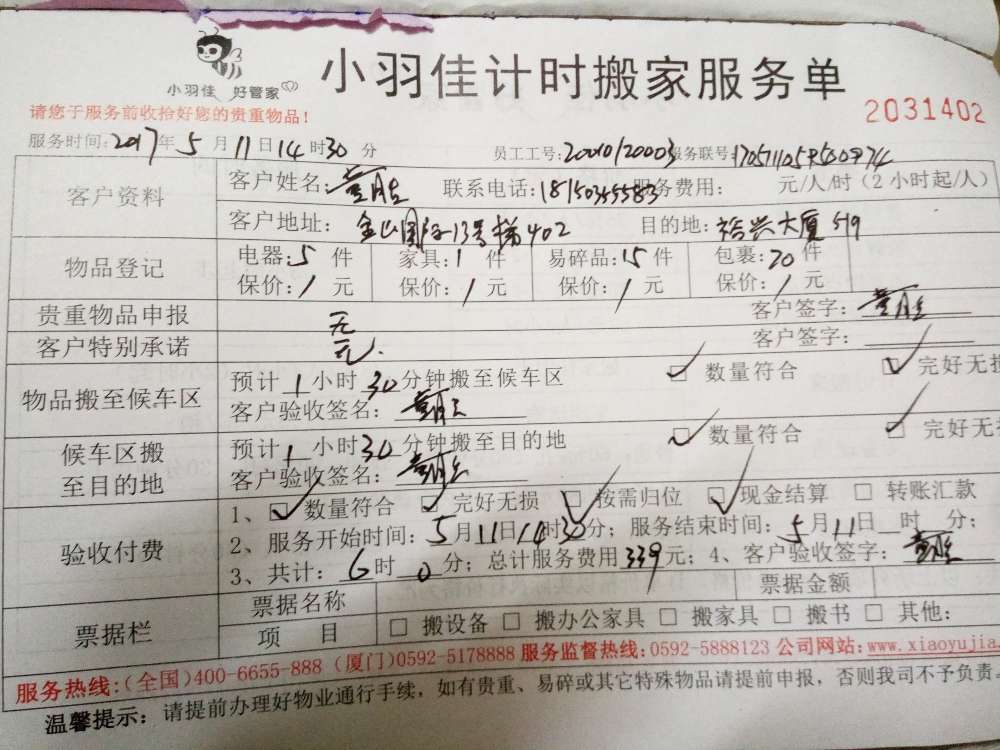 小羽佳 好管家
小羽佳计时搬家服务单
请您于服务前收拾好您的贵重物品！
2031402
服务时间：2017年5月11日14时30分 员工工号：20010/20003 服务联号：
客户资料
客户姓名： 联系电话：18150345583 服务费用： 元/人/时（2小时起/人）
客户地址：金山国际13号梯402 目的地：裕兴大厦519
物品登记
电器：5件 家具：1件 易碎品：15件 包裹：20件
保价：/元 保价：/元 保价：/元 保价：/元
贵重物品申报 无 客户签字：
客户特别承诺 无. 客户签字：
物品搬至候车区
预计1小时30分钟搬至候车区 数量符合 完好无损
客户验收签名：
候车区搬至目的地
预计1小时30分钟搬至目的地 数量符合 完好无
客户验收签名：
验收付费
1、数量符合 完好无损 按需归位 现金结算 转账汇款
2、服务开始时间：5月11日14时30分；服务结束时间：5月11日 时 分；
3、共计：6时0分；总计服务费用339元；4、客户验收签字：
票据栏
票据名称 票据金额
项 目 搬设备 搬办公家具 搬家具 搬书 其他：
服务热线：（全国）400-6655-888（厦门）0592-5178888 服务监督热线：0592-5888123 公司网站：www.xiaoyujia
温馨提示：请提前办理好物业通行手续，如有贵重、易碎或其它特殊物品请提前申报，否则我司不予负责。